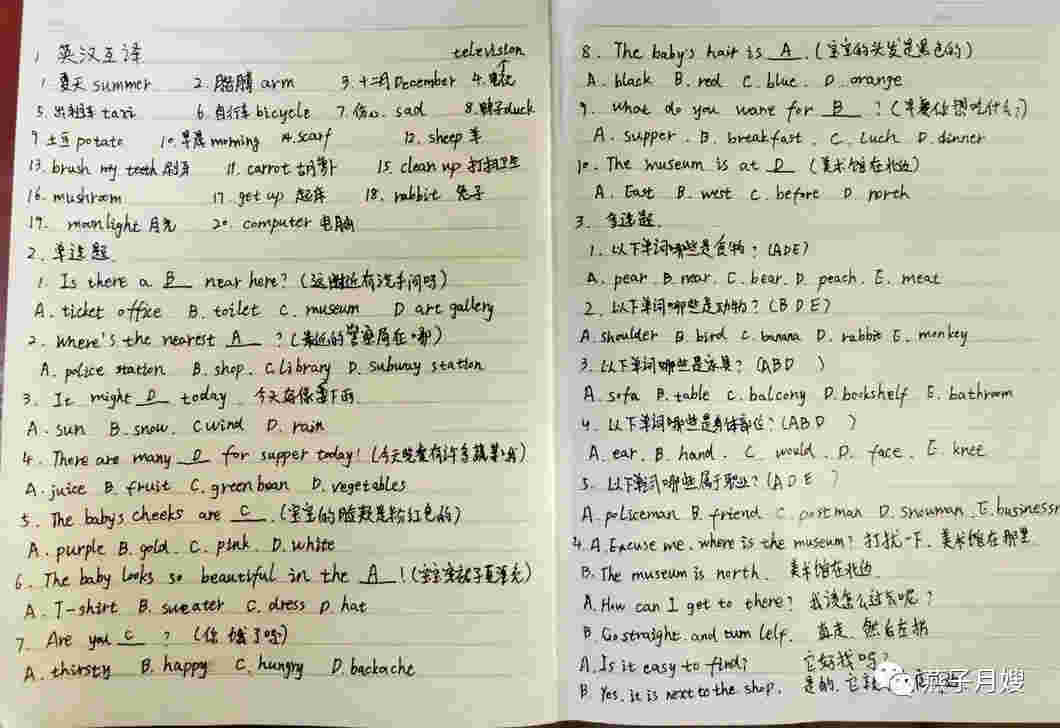 1 英汉互译
television
1. 夏天 summer 2. 胳膊 arm 3. 十二月 December 4. 电视
5. 出租车 taxi 6. 自行车 bicycle 7. 伤心. sad 8. 鸭子 duck
9 土豆 potato 10. 早晨 morning 11. scarf 12. sheep 羊
13. brush my teeth 刷牙 11. carrot 胡萝卜 15. clean up 打扫卫生
16. mushroom 17. get up 起床 18. rabbit 兔子
19. moonlight 月光 20. computer 电脑
2. 单选题
1. Is there a B near here? (这附近有洗手间吗)
A. ticket office B. toilet C. museum D art gallery
2. Where's the nearest A ? (最近的警察局在哪)
A. police station B. shop. C. library D. subway station
3. It might D today. 今天好像要下雨
A. sun B. snow. C wind D. rain
4. There are many D for supper today! (今天晚餐有许多蔬菜)
A. juice B. fruit C. green bean D. vegetables
5. The baby's cheeks are C. (宝宝的脸颊是粉红色的)
A. purple B. gold. C. pink. D. white
6. The baby looks so beautiful in the A ! (宝宝穿裙子真漂亮)
A. T-shirt B. sweater C. dress D. hat
7. Are you C ? (你饿了吗)
A. thirsty B. happy C. hungry D. backache
8. The baby's hair is A. (宝宝的头发是黑色的)
A. black B. red C. blue. D. orange
9. what do you want for B ? (早餐你想吃什么?)
A. supper. B. breakfast. C. Luch D. dinner
10. The museum is at D (美术馆在北边)
A. East B. west C. before D. north
3. 多选题.
1. 以下单词哪些是食物? (ADE)
A. pear. B. near. C. bear. D. peach. E. meat
2. 以下单词哪些是动物? (BDE)
A. shoulder B. bird C. banana D. rabbit E. monkey
3. 以下单词哪些是家具? (ABD )
A. sofa B. table C. balcony D. bookshelf E. bathroom
4. 以下单词哪些是身体部位? (ABD )
A. ear. B. hand. C. would. D. face. E. knee
5. 以下单词哪些属于职业? (ADE )
A. policeman B. friend C. postman D. snowman. E. business
4. A. Excuse me. where is the museum? 打扰一下. 美术馆在那里
B. The museum is north. 美术馆在北边
A. How can I get to there? 我该怎么过去呢?
B. Go straight and turn lelf. 直走. 然后左拐
A. Is it easy to find? 它好找吗?
B. Yes, it is next to the shop. 是的, 它就
燕子月嫂